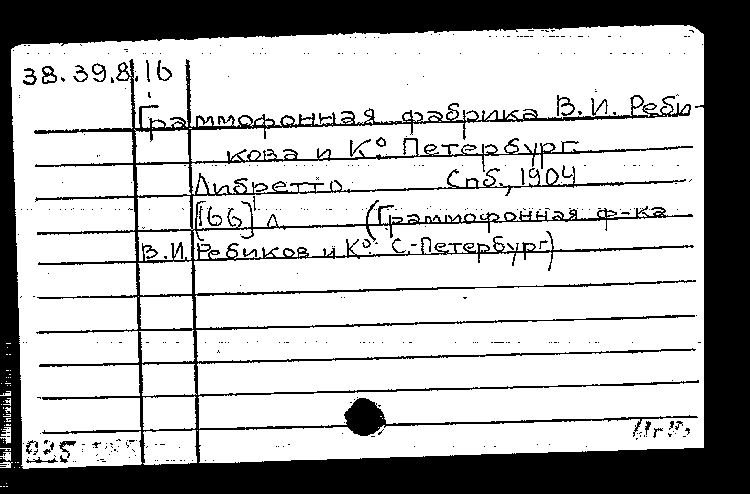 38.39.8.16
Граммофонная фабрика В.И. Реби-
кова и Ко. Петербург.
Либретто. Спб., 1904
[66] л. (Граммофонная ф-ка
В.И. Ребиков и Ко. С.-Петербург)